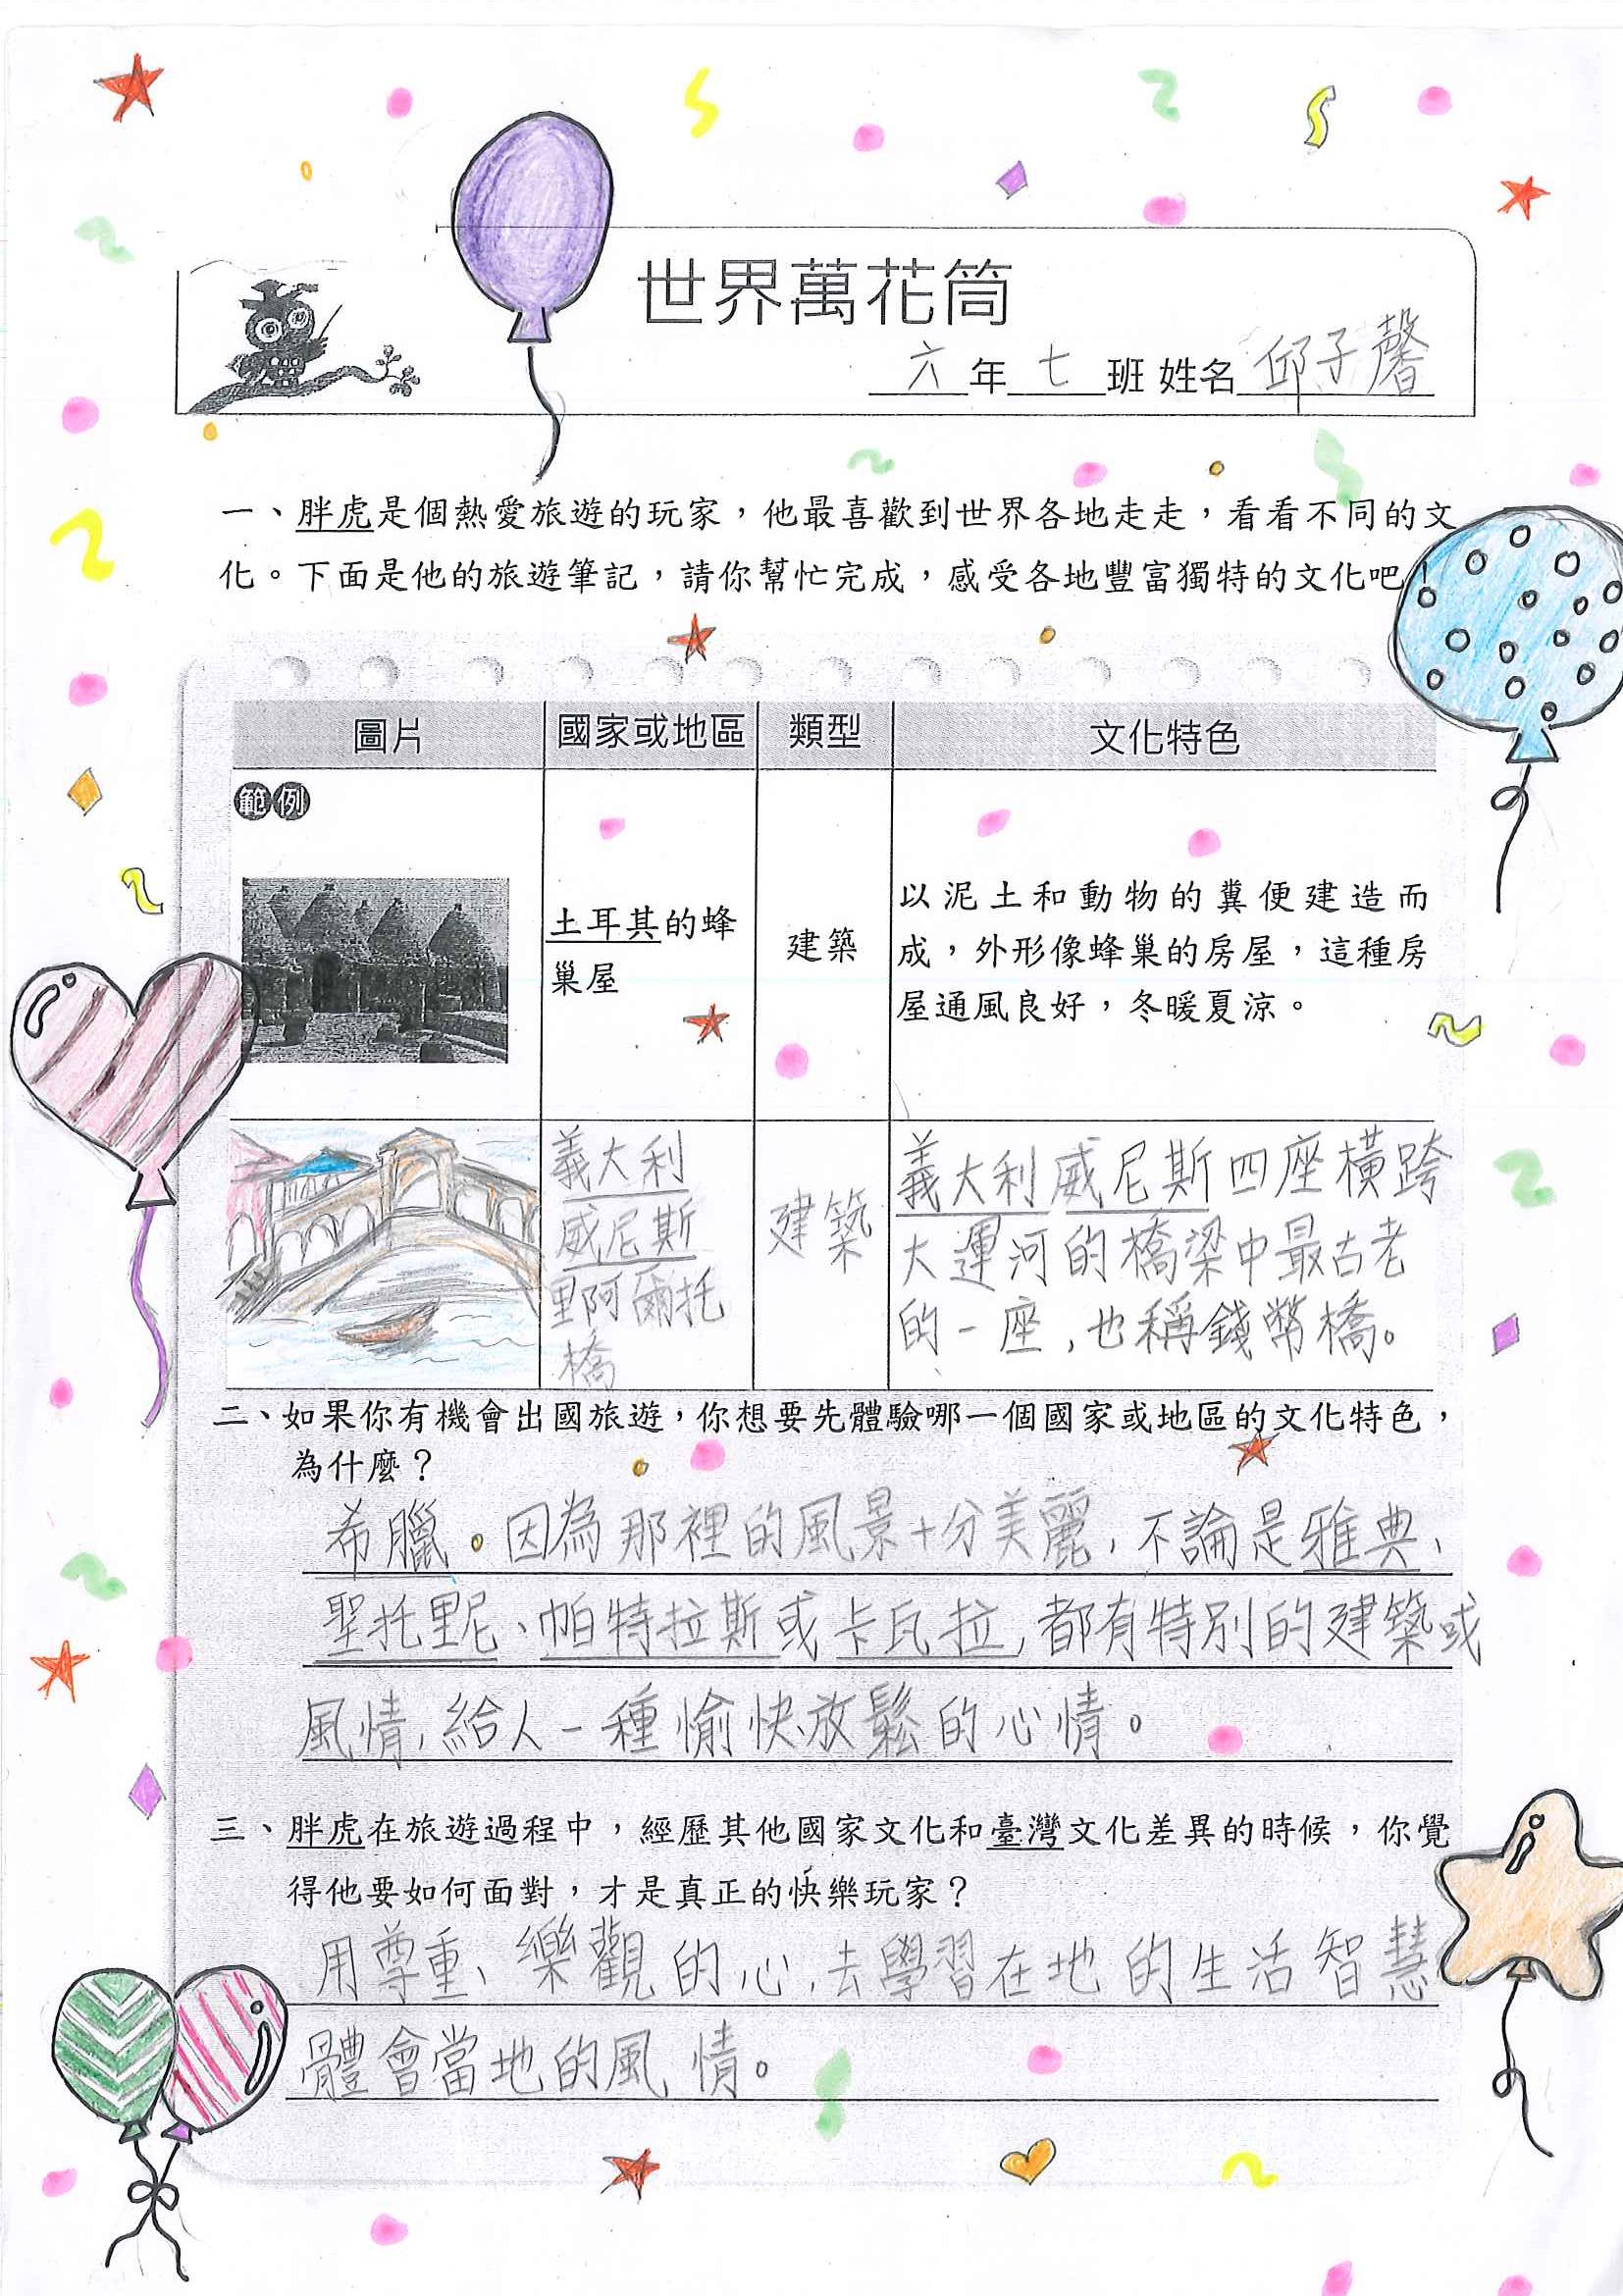 世界萬花筒
六年七班 姓名邱子馨
一、胖虎是個熱愛旅遊的玩家，他最喜歡到世界各地走走，看看不同的文
化。下面是他的旅遊筆記，請你幫忙完成，感受各地豐富獨特的文化吧！
圖片 國家或地區 類型 文化特色
範例
土耳其的蜂
巢屋
建築
以泥土和動物的糞便建造而
成，外形像蜂巢的房屋，這種房
屋通風良好，冬暖夏涼。
義大利
威尼斯
里阿爾托
橋
建築
義大利威尼斯四座橫跨
大運河的橋梁中最古老
的一座，也稱錢幣橋。
二、如果你有機會出國旅遊，你想要先體驗哪一個國家或地區的文化特色，
為什麼？
希臘。因為那裡的風景十分美麗，不論是雅典、
聖托里尼、帕特拉斯或卡瓦拉，都有特別的建築或
風情，給人一種愉快、放鬆的心情。
三、胖虎在旅遊過程中，經歷其他國家文化和臺灣文化差異的時候，你覺
得他要如何面對，才是真正的快樂玩家？
用尊重、樂觀的心，去學習在地的生活智慧
體會當地的風情。